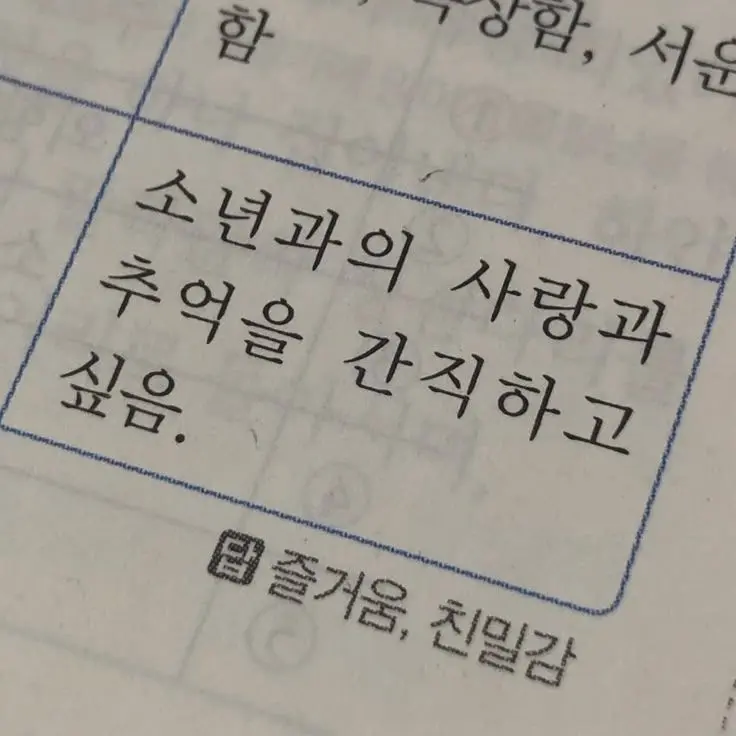 속상함, 서운
함
소년과의 사랑과
추억을 간직하고
싶음.
답 즐거움, 친밀감